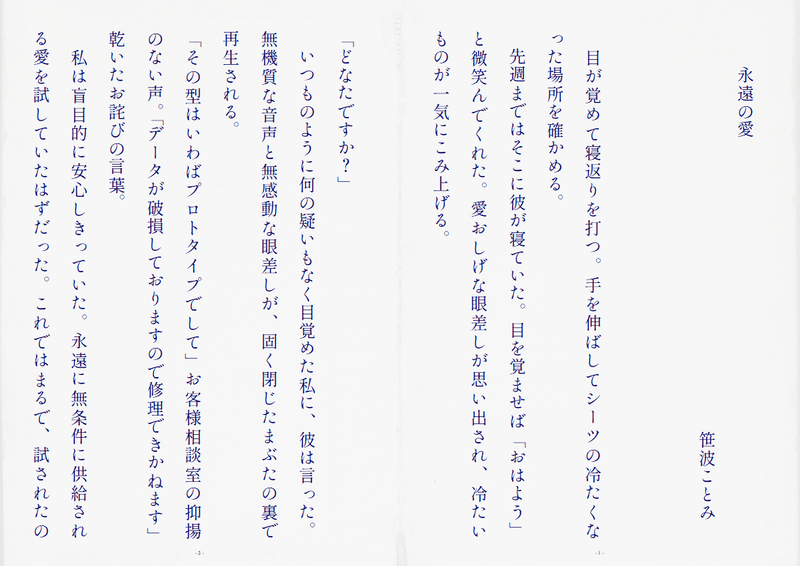 永遠の愛
笹波ことみ
目が覚めて寝返りを打つ。手を伸ばしてシーツの冷たくな
った場所を確かめる。
先週まではそこに彼が寝ていた。目を覚ませば「おはよう」
と微笑んでくれた。愛おしげな眼差しが思い出され、冷たい
ものが一気にこみ上げる。
-1-
「どなたですか？」
いつものように何の疑いもなく目覚めた私に、彼は言った。
無機質な音声と無感動な眼差しが、固く閉じたまぶたの裏で
再生される。
「その型はいわばプロトタイプでして」お客様相談室の抑揚
のない声。「データが破損しておりますので修理できかねます」
乾いたお詫びの言葉。
私は盲目的に安心しきっていた。永遠に無条件に供給され
る愛を試していたはずだった。これではまるで、試されたの
-2-